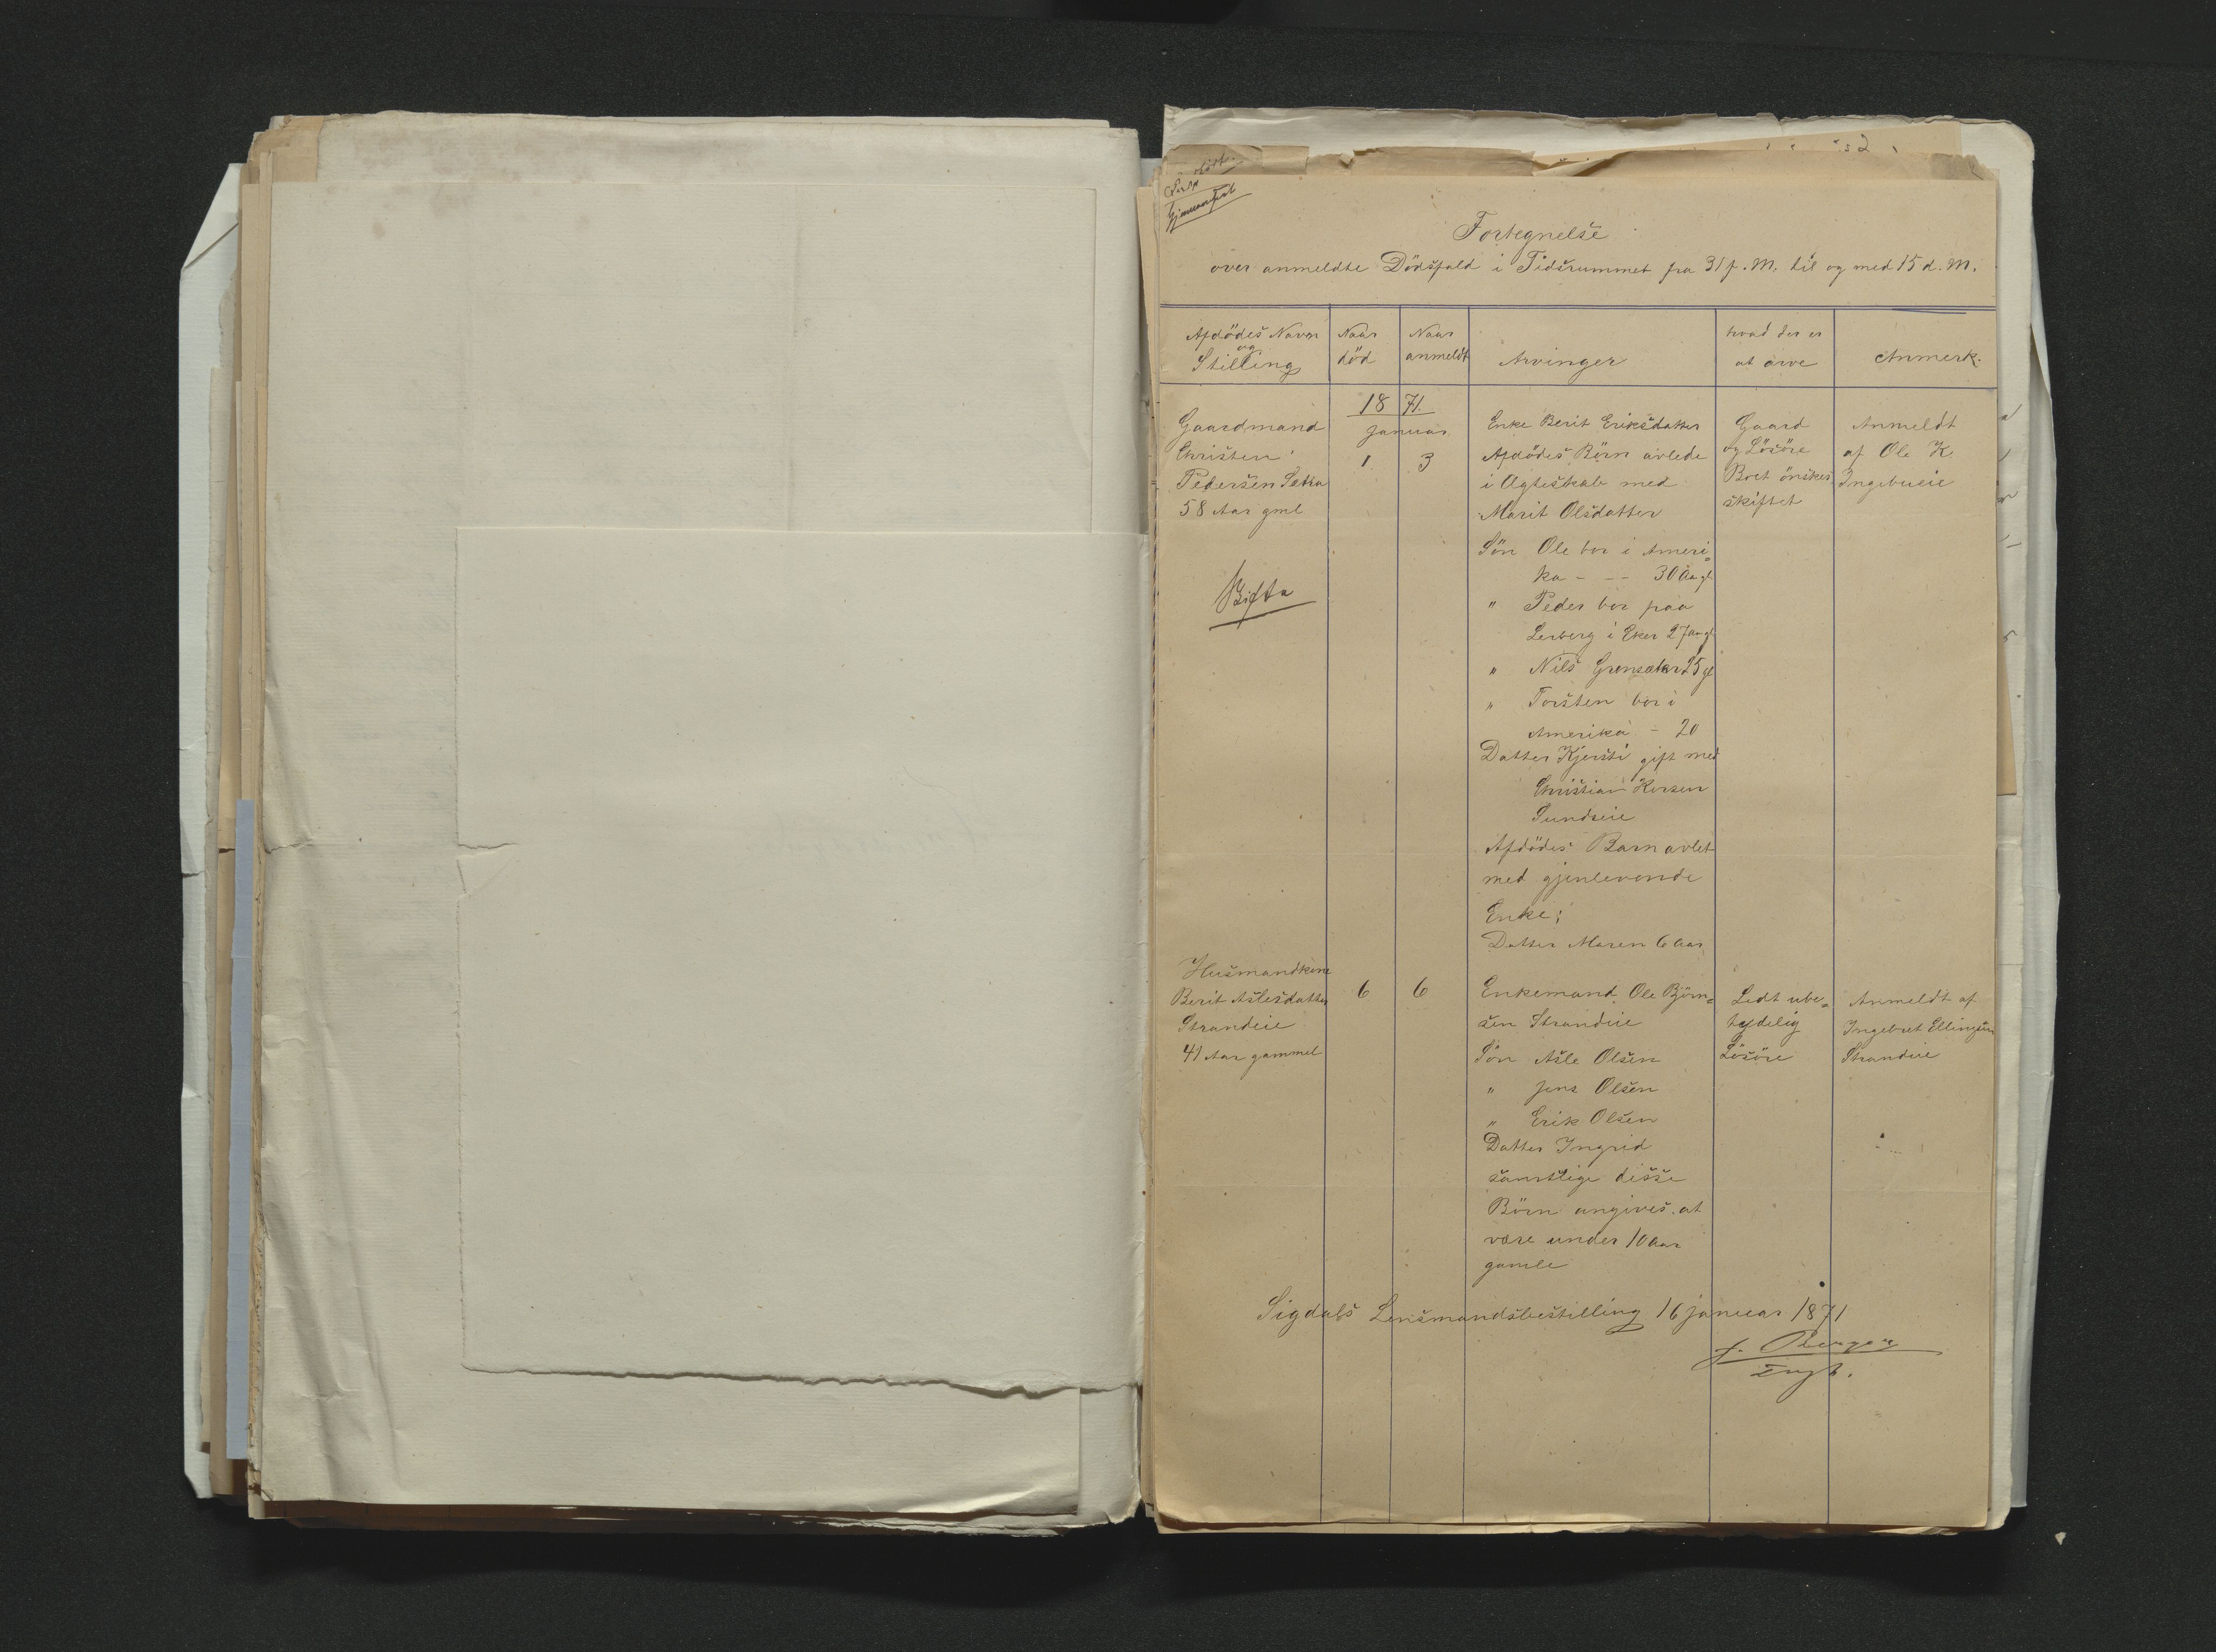 Fortegnelse
over anmeldte Dödsfald i Tidsrummet fra 31 f. M. til og med 15 d. M.
Afdödes Navn
og
Stilling
Naar
död
Naar
anmeldt
Arvinger
hvad der er
at arve
Anmerk.
1871.
Januar
Gaardmand
Christen
Pedersen
58 Aar gml
1
3
Enke Berit Eriksdatter
Afdödes Börn avlede
i Ægteskab med
Marit Olsdatter
Sön Ole bor i Ameri=
ka - - - 30 Aar gl
" Peder bor paa
Lerberg i Eker 27 aar gl
" Nils 25 gl
" Torsten bor i
Amerika - 20
Datter Kjersti gift med
Christian
Sundseie
Afdödes Barn avlet
med gjenlevende
Enke;
Datter Maren 6 Aar
Gaard
og Lösöre
Boet önskes
skiftet
Anmeldt
af Ole K.
Husmandkone
Berit Aslesdatter
Strandeie
41 Aar gammel
6
6
Enkemand Ole Björn=
sen Strandeie
Sön Asle Olsen
" Jens Olsen
" Erik Olsen
Datter Ingrid
samtlige disse
Börn angives at
være under 10 Aar
gamle
Lidt ube=
tydelig
Lösöre
Anmeldt af
Ingebret Ellingsen
Strandeie
Sigdals Lensmandsbestilling 16 Januar 1871